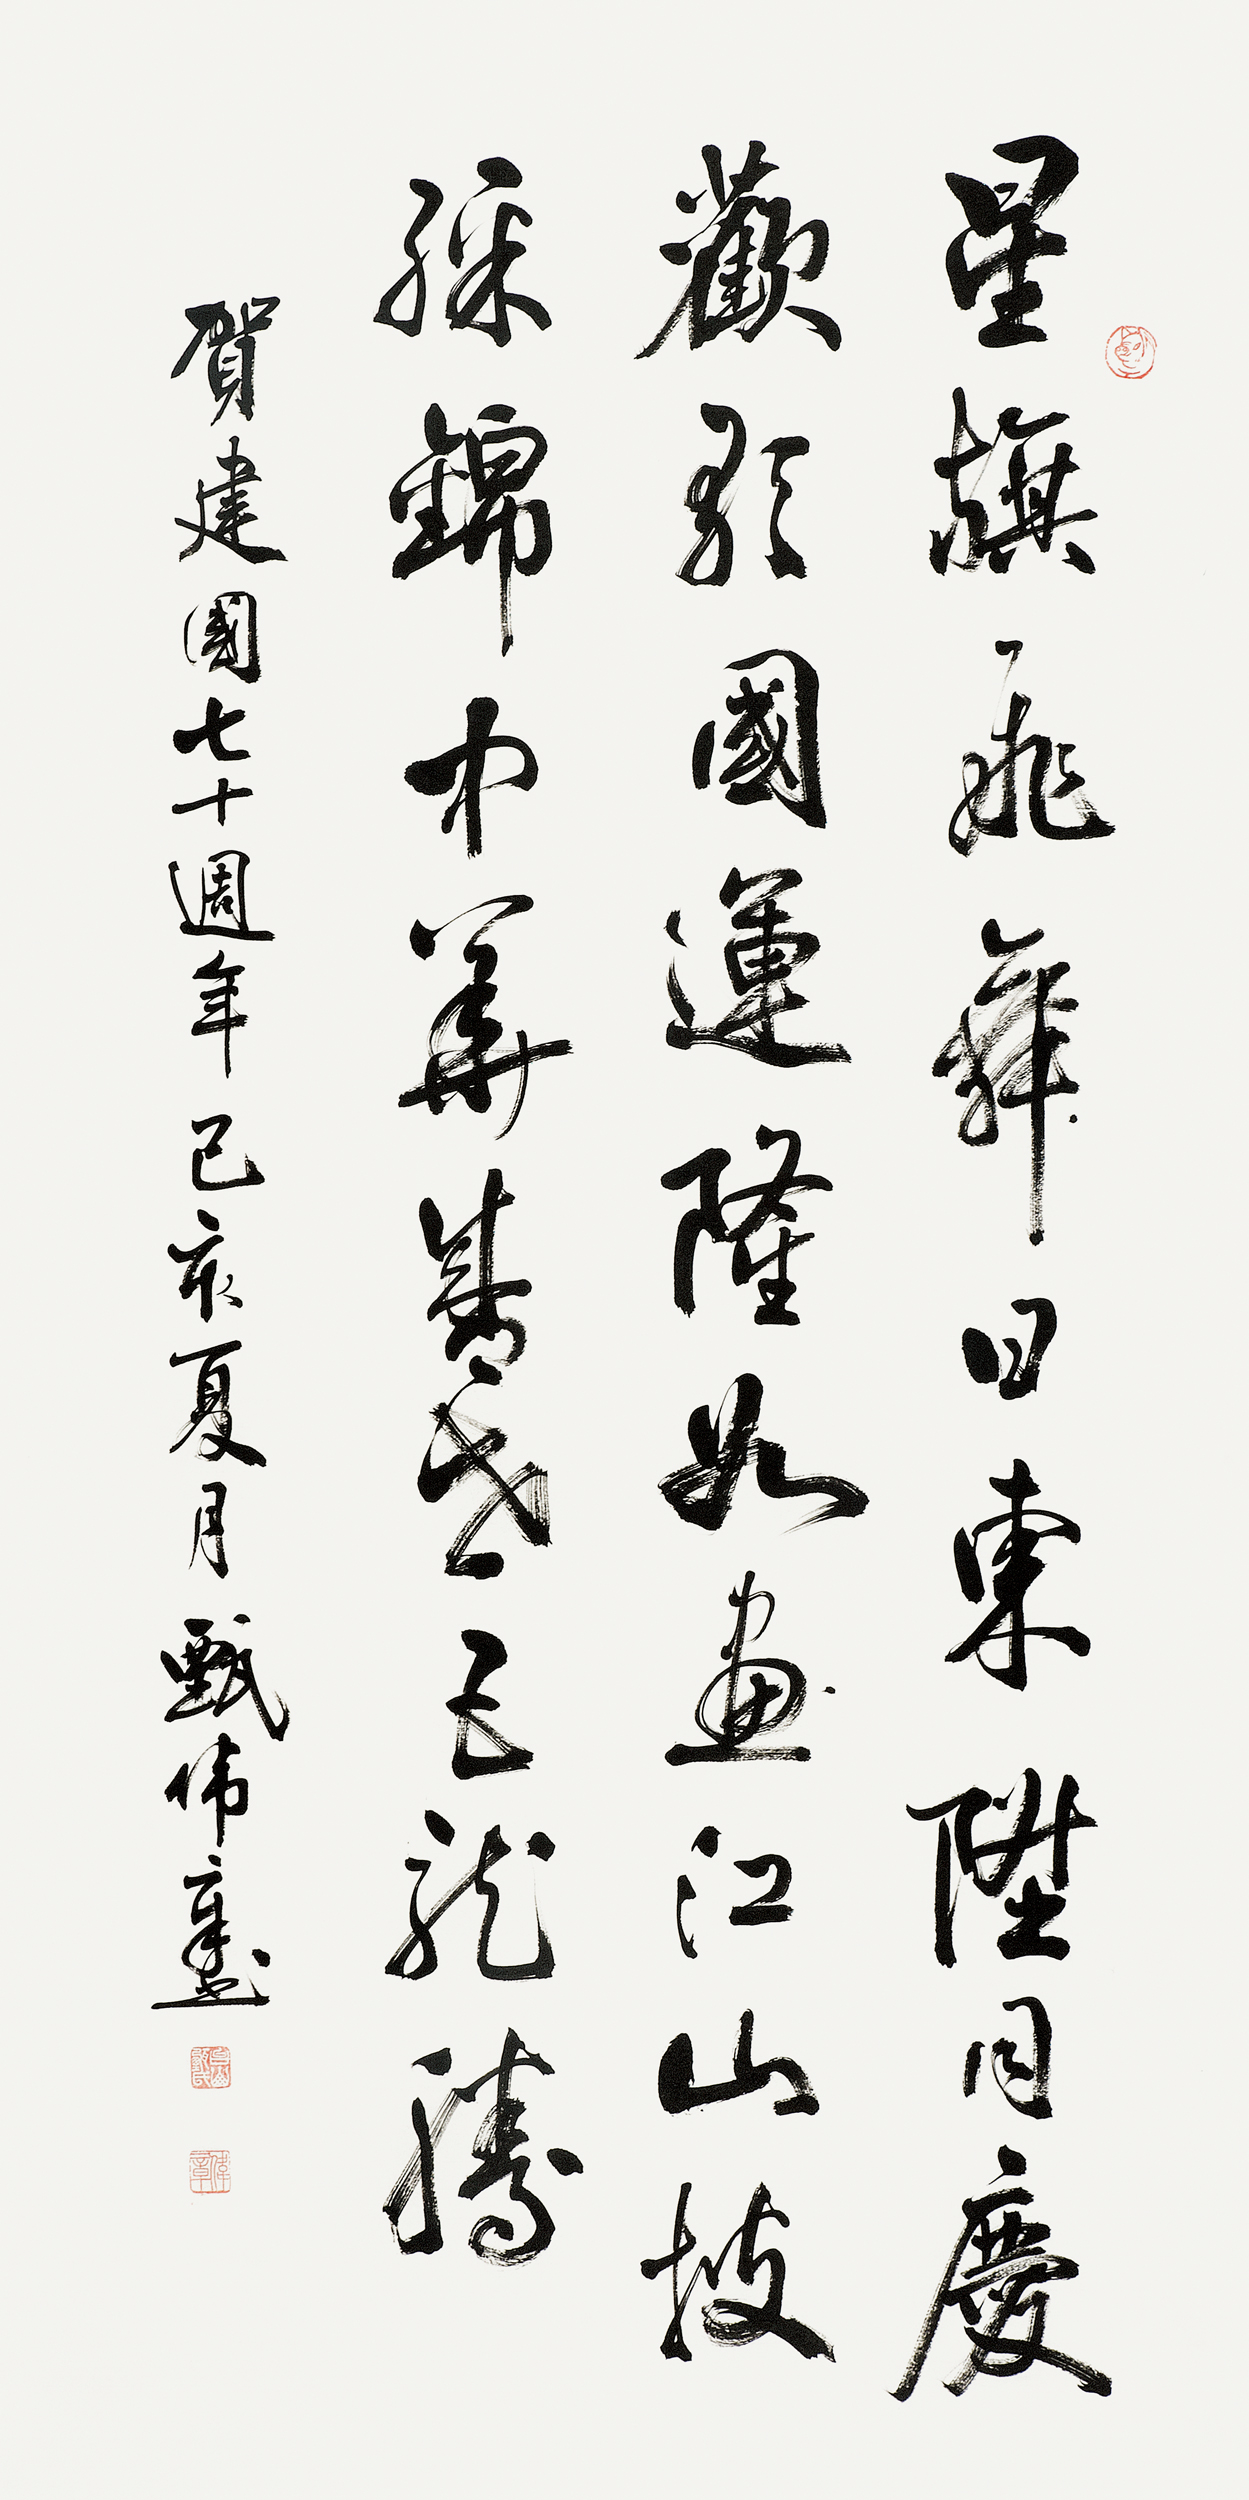 星旗飛舞日東陞同慶
歡歌國運隆如畫江山披
綵錦中華巨龍騰
賀建國七十週年己亥夏月甄偉章
偉章